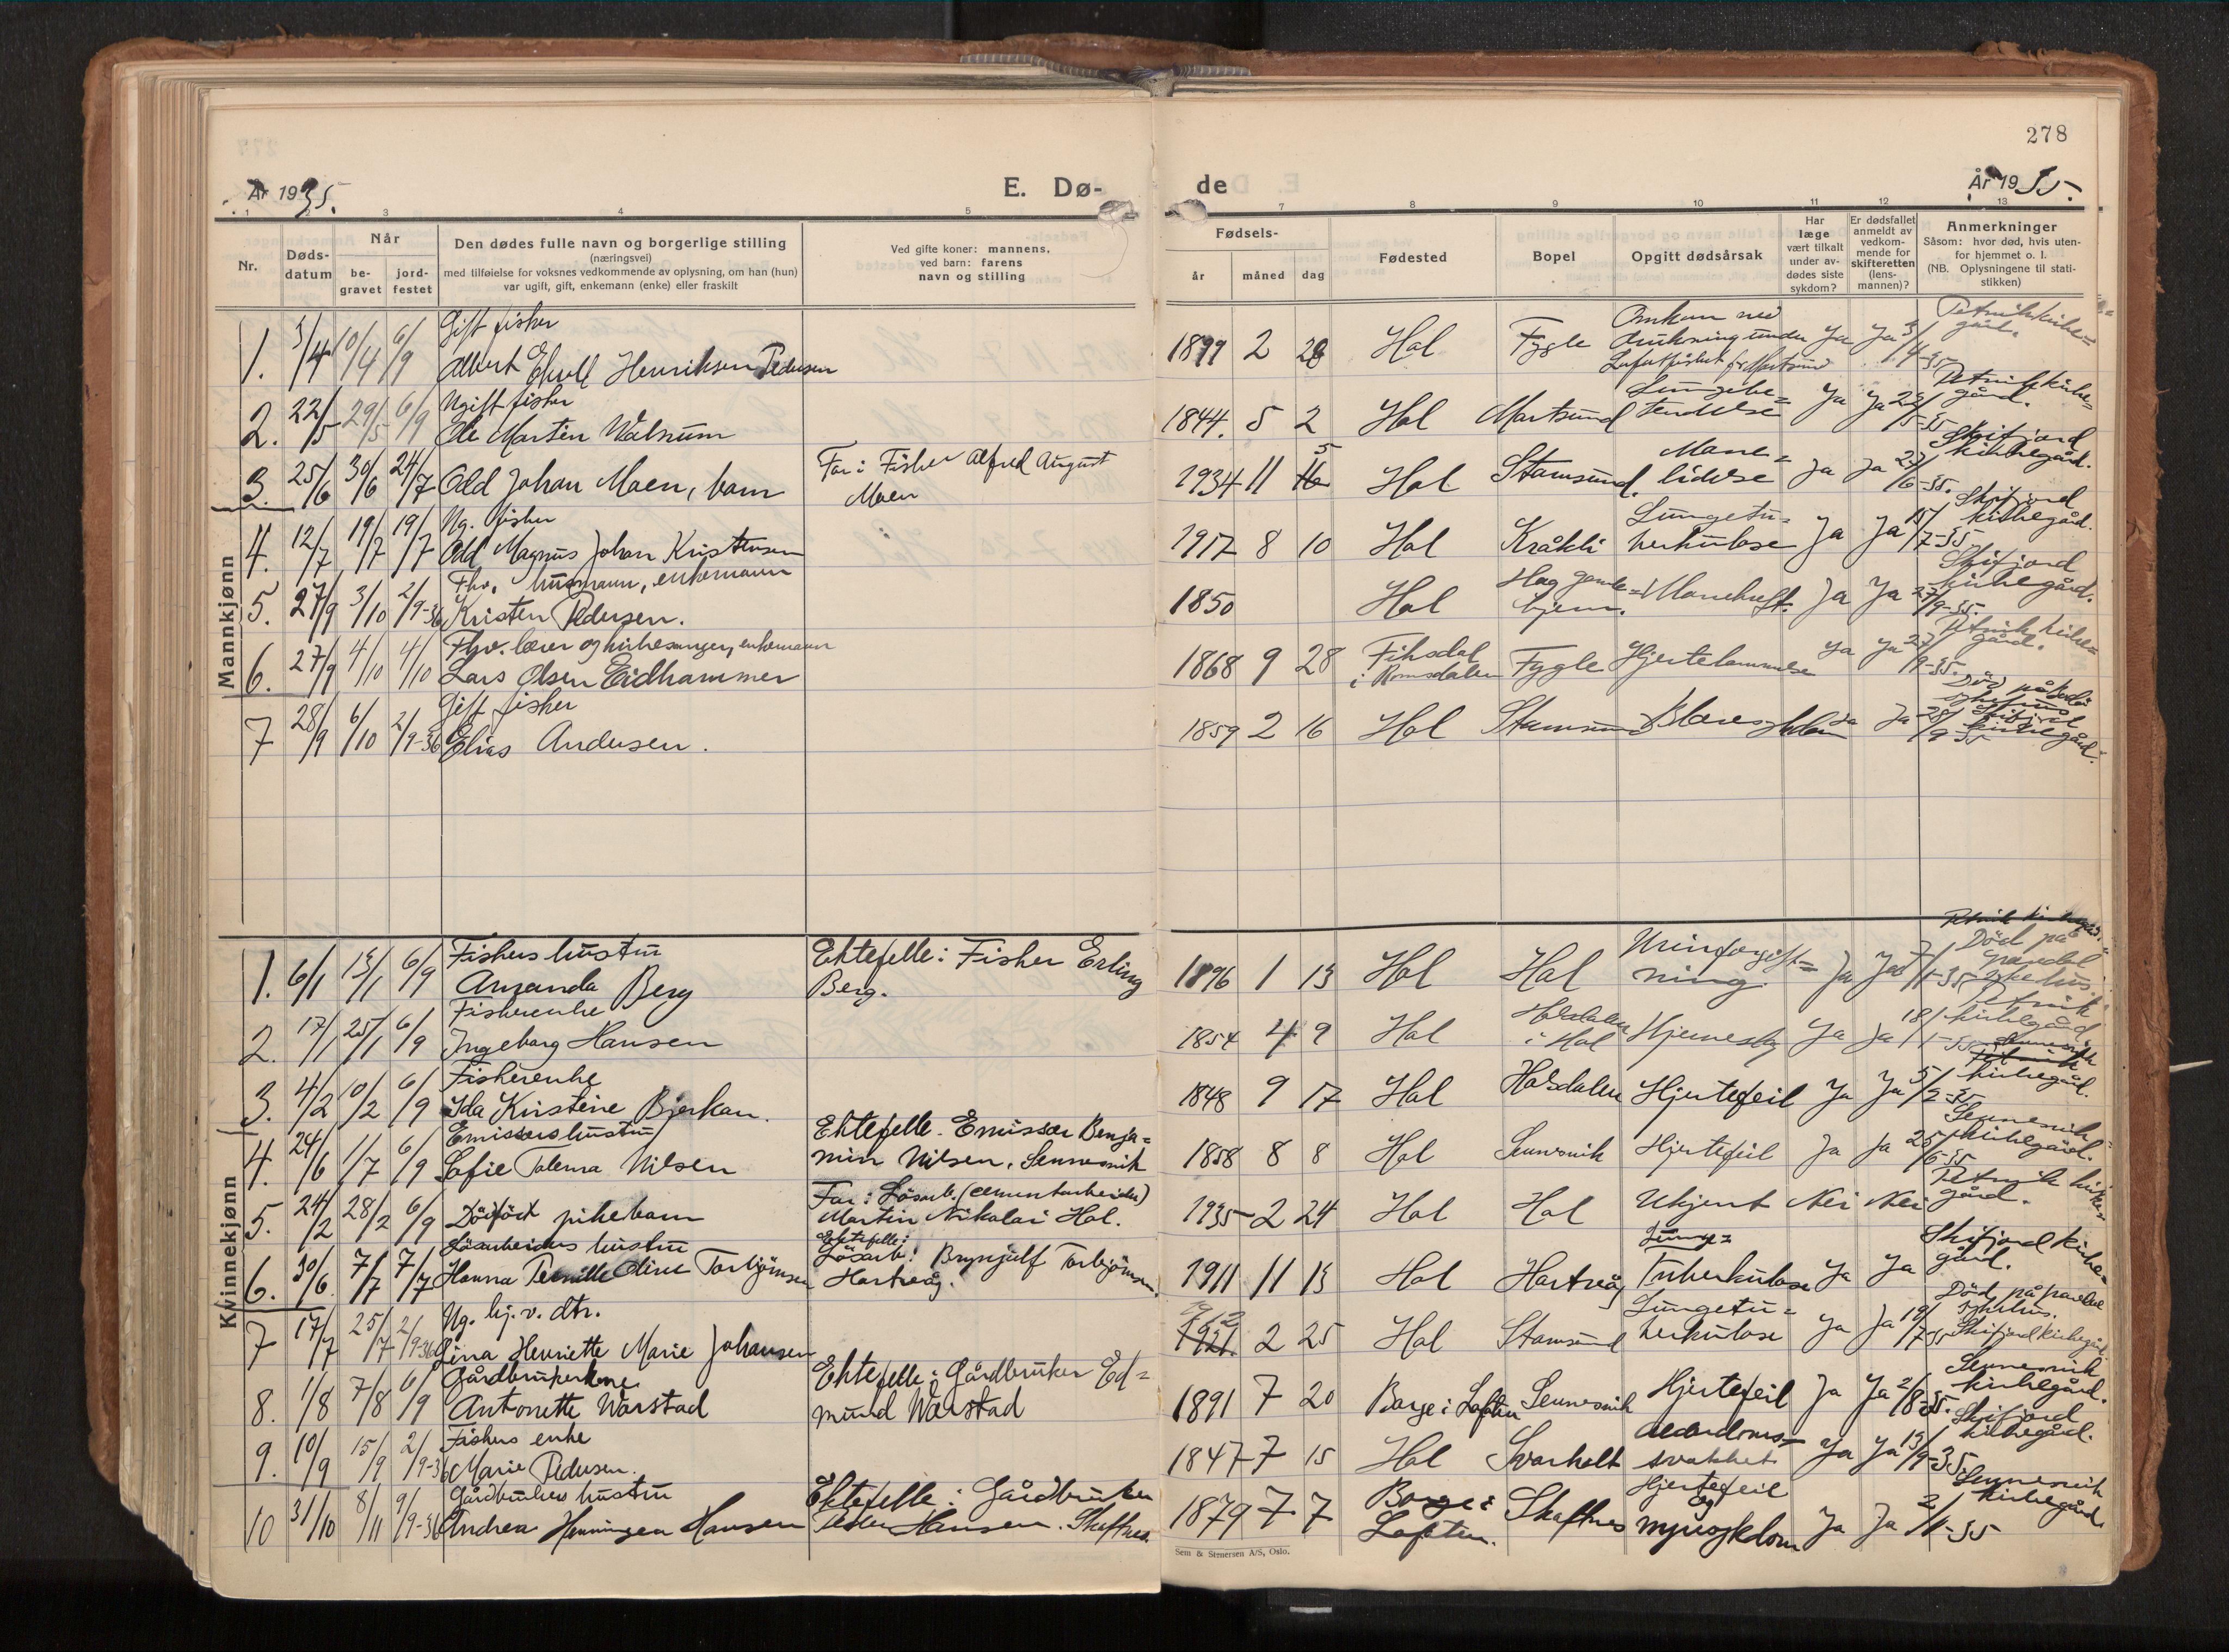 278
År 1935.
E. Dø-
de
År 1935.
1 2 3 4 5
7 8 9 10 11 12 13
Nr.
Døds-
datum
Når
be-
gravet
jord-
festet
Den dødes fulle navn og borgerlige stilling
(næringsvei)
med tilføielse for voksnes vedkommende av oplysning, om han (hun)
var ugift, gift, enkemann (enke) eller fraskilt
Ved gifte koner: mannens,
ved barn: farens
navn og stilling
Fødsels-
år måned dag
Fødested
Bopel
Opgitt dødsårsak
Har
læge
vært tilkalt
under av-
dødes siste
sykdom?
Er dødsfallet
anmeldt av
vedkom-
mende for
skifteretten
(lens-
mannen)?
Anmerkninger
Såsom: hvor død, hvis uten-
for hjemmet o. l.
(NB. Oplysningene til stati-
stikken)
Mannkjønn
Gift fisker
1. 3/4 10/4 6/9 Albert Henriksen Pedersen
1899 2 28 Hol Fygle Omkom ved
drukning under
Ja Ja
Ugift fisker
2. 22/5 29/5 6/9 Ole Martin Walnum
1844. 5 2 Hol Mortsund Lungebe=
tendelse Ja Ja
3. 25/6 30/6 24/7 Odd Johan Moen, barn
Far: Fisker Alfred August
Moen
1934 11 5 Hol Stamsund. Mave=
lidelse Ja Ja
Skifjord
kirkegård.
Ug. fisker
4. 12/7 19/7 19/7 Odd Magnus Johan Kristensen
1917 8 10 Hol Kråkli Lungetu=
berkulose Ja Ja 15/7-35
Skifjord
kirkegård.
Fhv. husmann, enkemann
5. 27/9 3/10 2/9-36 Kristen Pedersen.
1850 Hol Hag gamle=
hjem. Mavekreft. Ja Ja 27/9-35.
Skifjord
kirkegård.
Fhv. lærer og kirkesanger, enkemann
6. 27/9 4/10 4/10 Lars Olsen Eidhammer
1868 9 28 Fiksdal
i Romsdalen Fygle Hjertelammelse Ja Ja 27/9-35.
Gift fisker
7 28/9 6/10 2/9-36 Elias Andersen.
1859 2 16 Hol Stamsund Ja Ja 28/9 35
Kvinnekjønn
Fiskers hustru
1. 6/1 13/1 6/9 Amanda Berg
Ektefelle: Fisker Erling
Berg.
1896 1 13 Hol Hol Urinforgift=
ning. Ja Ja 7/1-35
Død på
Gravdal
sykehus.
Fiskerenke
2. 17/1 25/1 6/9 Ingeborg Hansen
1854 4 9 Hol Holsdalen
i Hol Hjerneslag Ja Ja 18/1-35
Petvik
kirkegård.
Fiskerenke
3. 4/2 10/2 6/9 Ida Kristine Bjerkan.
1848 9 17 Hol Holsdalen Hjertefeil Ja Ja 5/2-35
kirkegård.
Emissærs hustru
4. 24/6 1/7 6/9 Sofie Nilsen
Ektefelle. Emissær Benja=
min Nilsen, Sennesvik
1858 8 8 Hol Sennesvik Hjertefeil Ja Ja 25/6-35
Sennesvik
kirkegård.
5. 24/2 28/2 6/9 Dødfødt pikebarn
Far: Løsarb. (cementarbeider)
Martin Nikolai Hol.
1935 2 24 Hol Hol Ukjent Nei Nei
gård.
Løsarbeiders hustru
6. 30/6. 7/7 7/7 Hanna Pernille Oline Torbjørnsen
Ektefelle:
Løsarb: Brynjulf Torbjørnsen.
Hartvåg.
1911 11 13 Hol Hartvåg Lunge=
Tuberkulose Ja Ja
Skifjord kirke=
gård.
Ug. hj.v. dtr.
7 17/7 25/7 2/9-36 Lina Henriette Marie Johansen
1912 2 25 Hol Stamsund Lungetu=
berkulose Ja Ja 19/7-35
Død på Gravdal
sykehus.
Skifjord kirkegård
Gårdbrukerkone
8. 1/8 7/8 6/9 Antonette Wårstad
Ektefelle: Gårdbruker Ed=
mund Wårstad
1891 7 20 Borge i Lofoten Sennesvik Hjertefeil Ja Ja 2/8-35.
Sennesvik
kirkegård.
Fiskers enke
9. 10/9 15/9 2/9-36 Marie Pedersen.
1847 7 15 Hol Svarholt Alderdoms=
svakhet Ja Ja 13/9-35.
Skifjord
kirkegård.
Gårdbrukers hustru
10 31/10 8/11 9/9-36 Andrea Henningea Hansen
Ektefelle: Gårdbruker
Peder Hansen. Skaftnes.
1879 7 7 Borge i
Lofoten. Skaftnes Hjertefeil
og
nyresykdom Ja Ja 2/11-35
Sennesvik
kirkegård.
Sem & Stenersen A/S, Oslo.